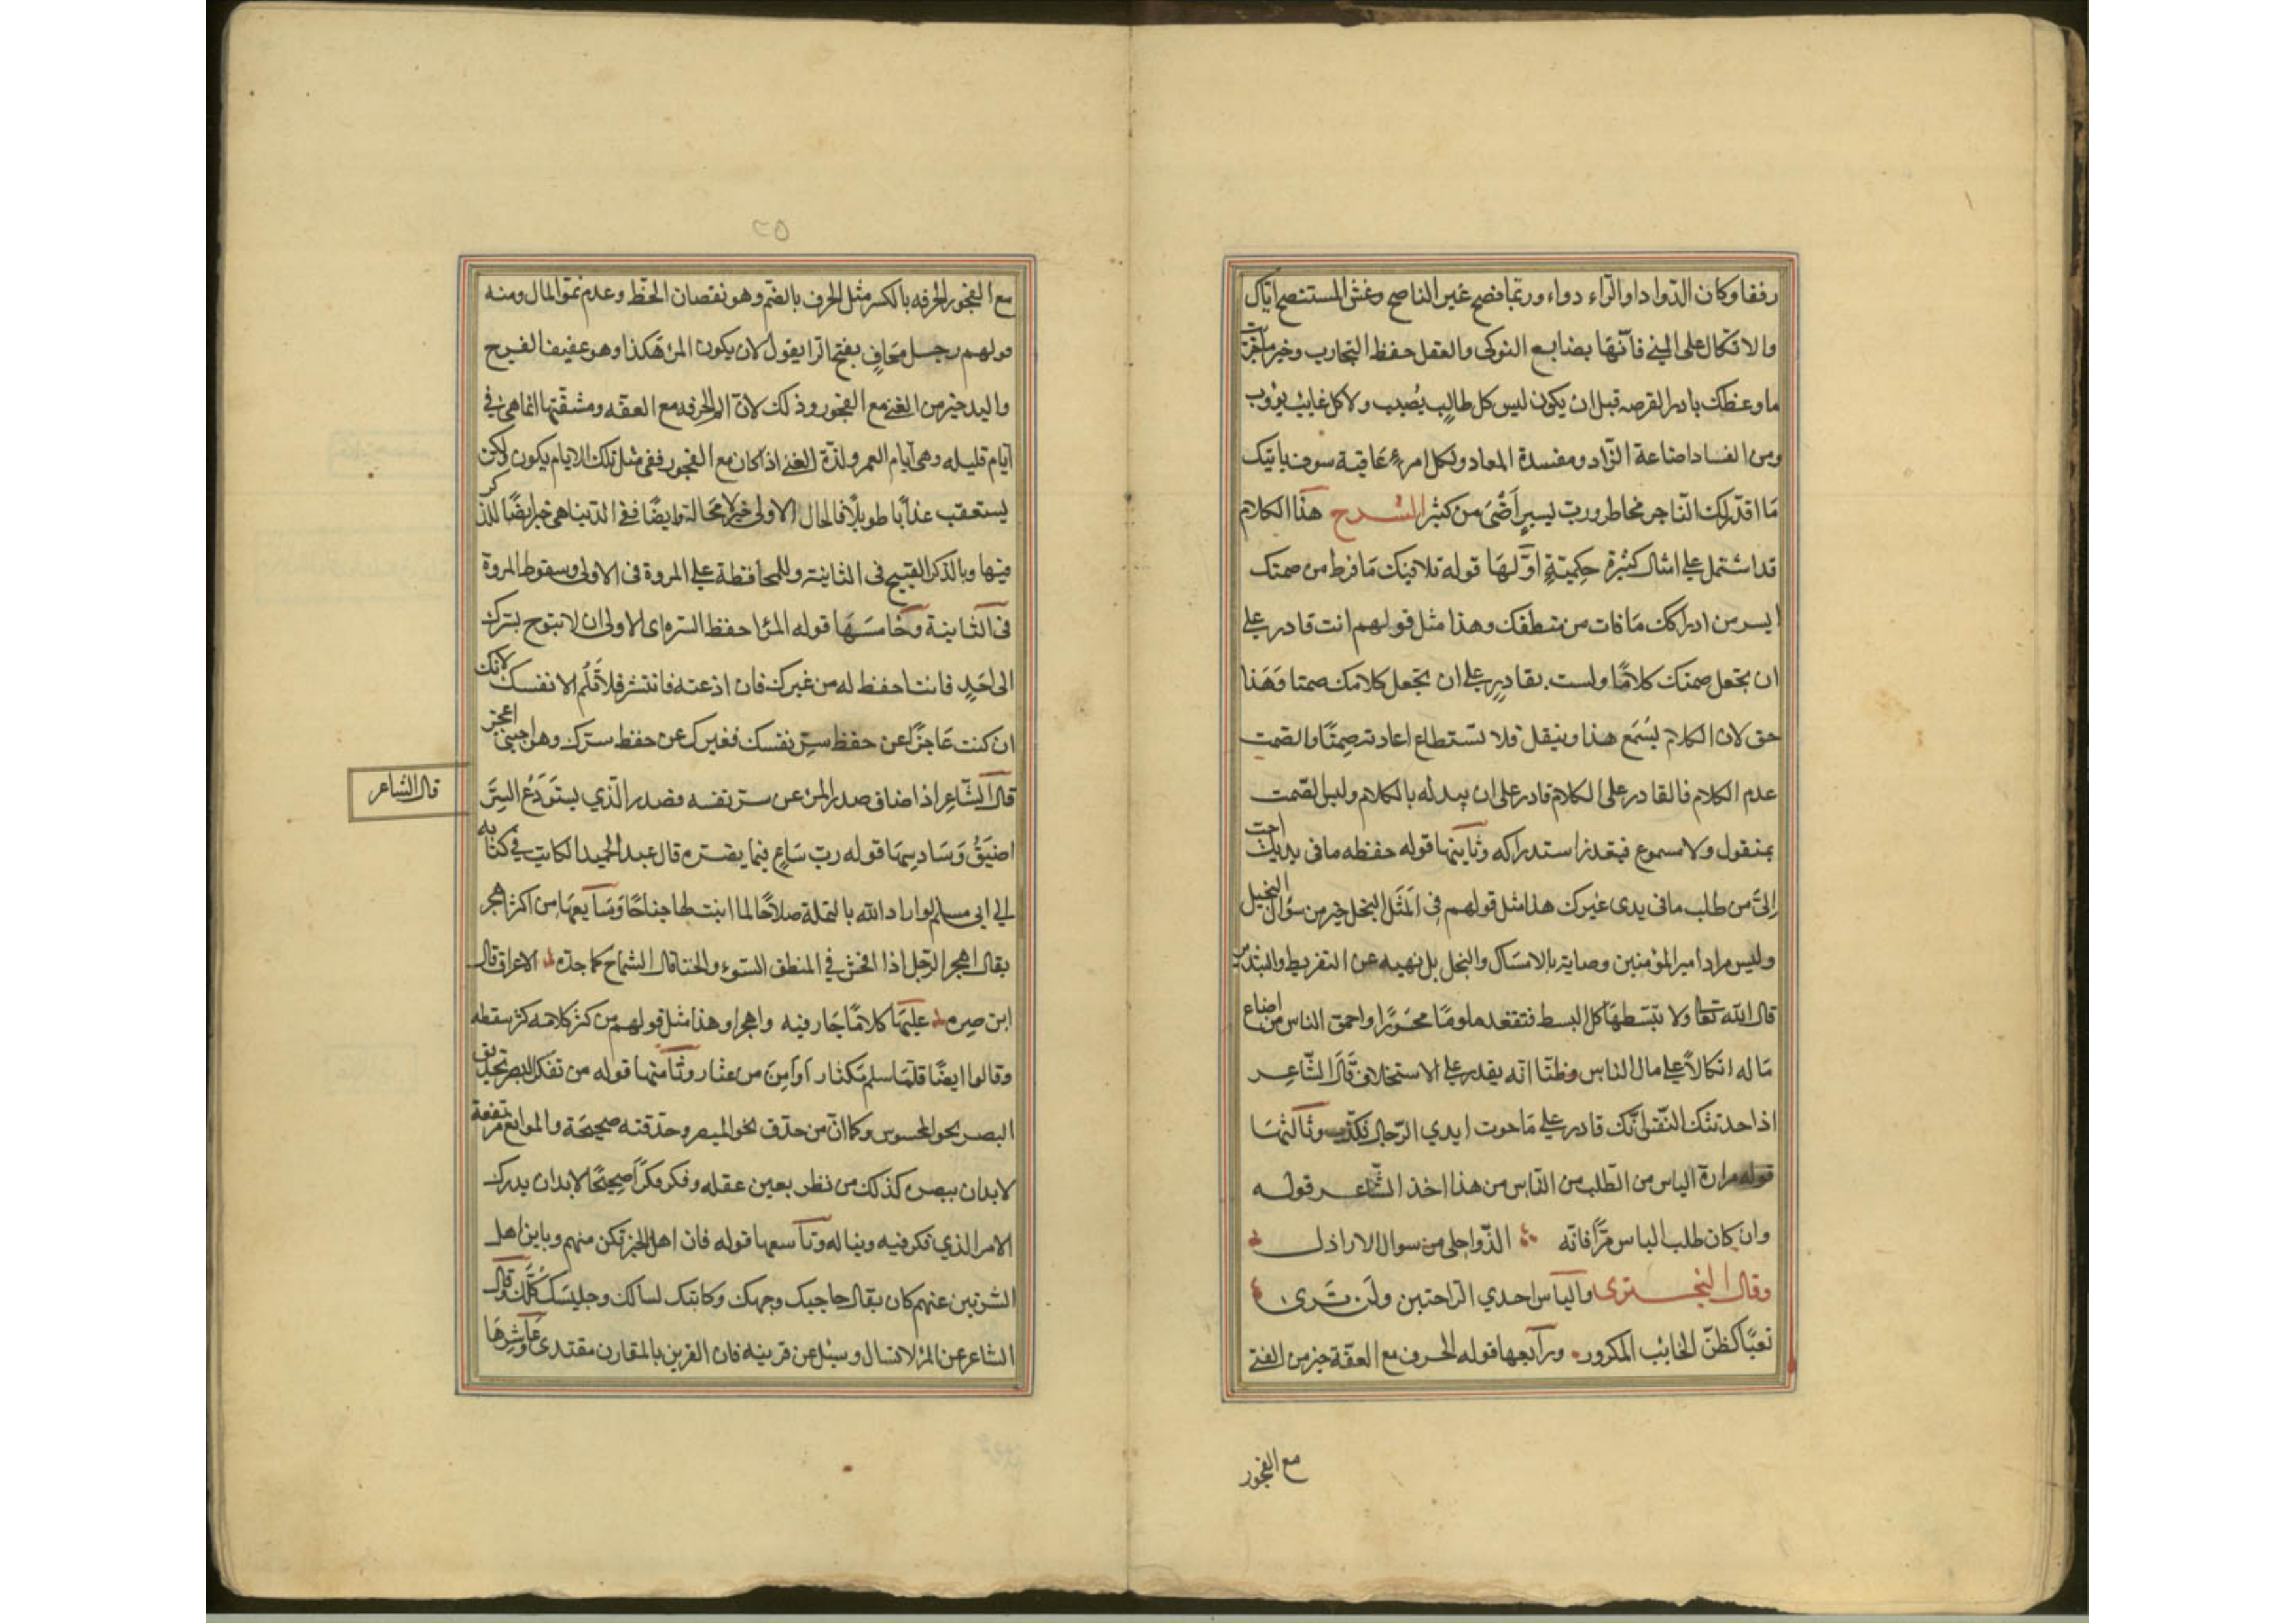 رفقا وكان الدوا داوالداء دواء وربما نصح غير الناصح وغش المستنصح اياك
والاتكال على المنى فانها بضايع النوكى والعقل حفظ التجارب وخير ما جربت
ما وعظك بادر الفرصه قبل ان يكون ليس كل طالب يصيب ولا كل غايب يؤوب
ومن الفساد اضاعة الزاد ومفسدة المعاد ولكل امرء عاقبة سوف ياتيك
ما قدر لك التاجر مخاطر ورب يسير أنمى من كثير الشرح هذا الكلام
قد اشتمل على امثال كثيرة حكمية اولها قوله تلافيك ما فرط من صمتك
ايسر من ادراكك ما فات من منطقك وهذا مثل قولهم انت قادر على
ان تجعل صمتك كلاما ولست بقادر على ان تجعل كلامك صمتا وهذا
حق لان الكلام يسمع هذا وينقل فلا تستطاع اعادته صمتا والصمت
عدم الكلام فالقادر على الكلام قادر على ان يبدله بالكلام وليس الصمت
بمنقول ولا مسموع فيتعذر استدراكه وثانيها قوله حفظه ما في يديك احب
الى من طلب ما في يدى غيرك هذا مثل قولهم في المثل البخل خير من سؤال البخيل
وليس مراد امير المؤمنين وصايته بالامساك والبخل بل نهيه عن التفريط والتبذير
قال الله تعا ولا تبسطها كل البسط فتقعد ملوما محسورا واحمق الناس من اضاع
ماله اتكالا على مال الناس وظنا انه يقدر على الاستخلاف قال الشاعر
اذا حدثتك النفس انك قادر على ما حوت ايدي الرجال فكذب وثالثها
قوله مرارة الياس من الطلب من الناس من هذا اخذ الشاعر قوله
وان كان طلب الياس مرا فانه الذ واحلى من سوال الاراذل
وقال البحترى والياس احدي الراحتين ولن ترى
تعبا كظن الخايب المكرور ورابعها قوله الحرف مع العفة خير من الغنى
مع الفجور
٢٥
مع الفجور الحرفه بالكسر مثل الحرف بالضم وهو نقصان الحظ وعدم نمو المال ومنه
قولهم رجل محارف بفتح الرا يقول لان يكون المرء هكذا وهو عفيف الفرج
واليد خير من الغنى مع الفجور وذلك لان الم الحرفه مع العفه ومشقتها انما هي في
ايام قليله وهي ايام العمر ولذة الغنى اذا كان مع الفجور ففي مثل تلك الايام يكون ولكن
يستعقب عذابا طويلا فالحال الاولى خير لا محالة وايضا ففي الدنيا هي خير ايضا للذكر
فيها وبالذكر القبيح في الثانية وللمحافظة على المروة في الاولى وسقوط المروة
في الثانية وخامسها قوله المرؤ احفظ لسره اى الاولى ان لا تبوح بسرك
الى احد فانت احفظ له من غيرك فان اذعته فانتشر فلا تلم الا نفسك لانك
ان كنت عاجزا عن حفظ سر نفسك فغيرك عن حفظ سرك وهو اجنبى اعجز
قال الشاعر
قال الشاعر اذا ضاق صدر المرء عن سر نفسه فصدر الذي يستودع السر
اضيق وسادسها قوله رب ساع فيما يضره قال عبد الحميد الكاتب في كتابه
الى ابي مسلم لو اراد الله بالنملة صلاحا لما انبت لها جناحا وسابعها من اكثر اهجر
يقال اهجر الرجل اذا افحش في المنطق السوء والخنا قال الشماخ كما جدة الاعراق قال
ابن ضره عليها كلاما جار فيه واهجرا وهذا مثل قولهم من كثر كلامه كثر سقطه
وقالوا ايضا قلما سلم مكثار أو أمن من عثار وثامنها قوله من تفكر ابصر تحديق
البصر نحو المحسوس وكما ان من حدق نحو المبصر وحدقته صحيحة والموانع مرتفعة
لابد ان يبصره كذلك من نظر بعين عقله وفكر فكرا صحيحا لابد ان يدرك
الامر الذي فكر فيه ويناله وتاسعها قوله قارن اهل الخير تكن منهم وباين اهل
الشر تبن عنهم كان يقال حاجبك وجهك وكاتبك لسانك وجليسك كلك وقال
الشاعر عن المرء لا تسال وسئل عن قرينه فان القرين بالمقارن مقتدى وعاشرها